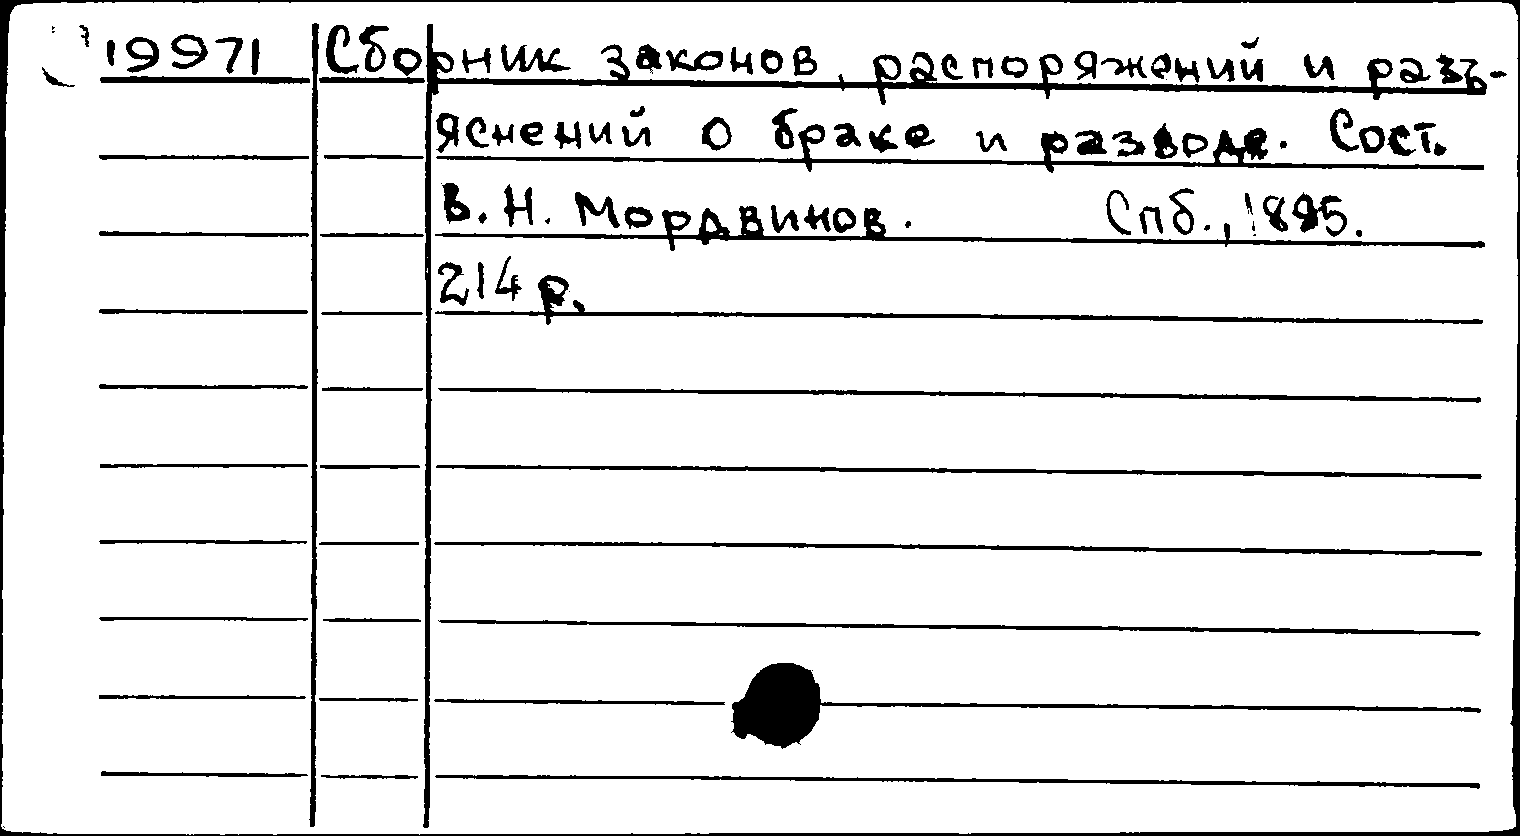 19971 Сборник законов, распоряжений и разъ-
яснений о браке и разводе. Сост.
В. Н. Мордвинов. Спб., 1895.
214 р.